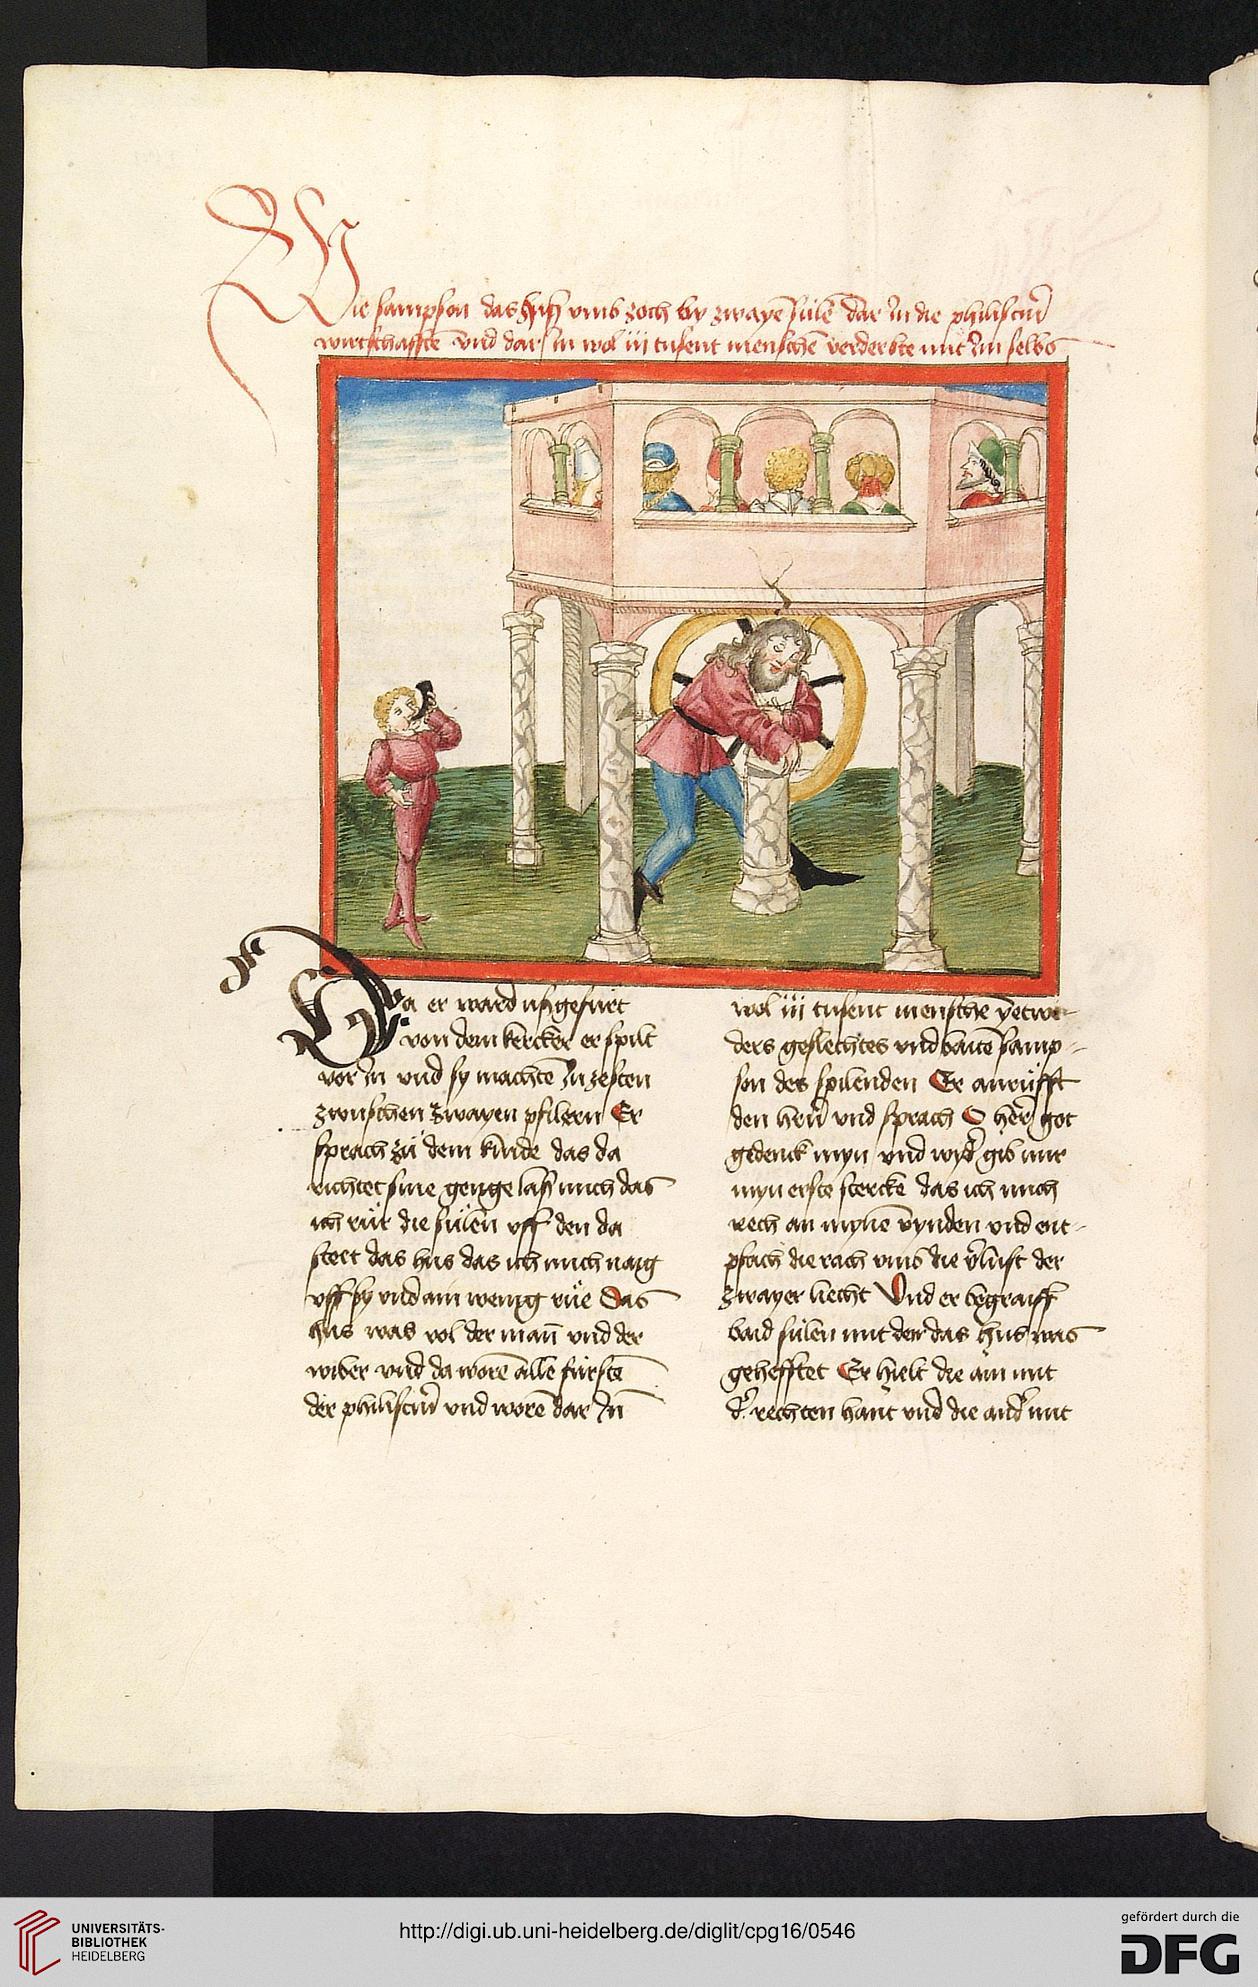 Wie sampson das huß umb zoch by zwayē sülē dar In die philistinͬ
wirtschafftē vnd dar In wol iij tusent menschē verderbte mit Im selbs
Da er ward ußgefüret
von dem kercker er spilt
vor In vnd sy machtē In zesten
zwüschen zwayen pfilern Er
sprach zü dem kinde das da
richtet sine genge laß mich das
ich rür die sülen vff den da
steet das hus das ich mich naig
vff sy vnd ain wenig rüe Das
hus was vol der mañ vnd der
wiber vnd da worē alle fürstē
der philistinͬ vnd worē dar In
wol iij tusent menschē yetwe-
ders geslechtes vnd baitē samp-
son des spilenden Er anrüfft
den herñ vnd sprach O herͬ got
gedenck myn vnd wydͬ gib mir
myn erste stercke das ich mich
rech an mynē vynden vnd ent-
pfach die rach vmb die vͬlust der
zwayer liecht Vnd er begraiff
baid sülen mit den das hus was
gehefftet Er hielt die ain mit
dͬ rechten hant vnd die andͬ mit
UNIVERSITÄTS-
BIBLIOTHEK
HEIDELBERG
http://digi.ub.uni-heidelberg.de/diglit/cpg16/0546
gefördert durch die
DFG